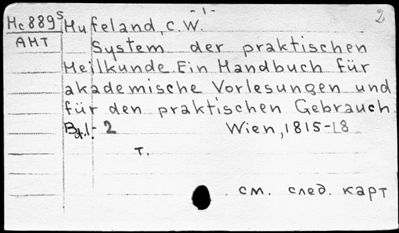 - 1 -
2
Нс889s Hufeland, C.W.
АНТ System der praktischen
Heilkunde. Ein Handbuch für
akademische Vorlesungen und
für den praktischen Gebrauch.
Bd.1-2 Wien, 1815-18
т.
см. след. карт